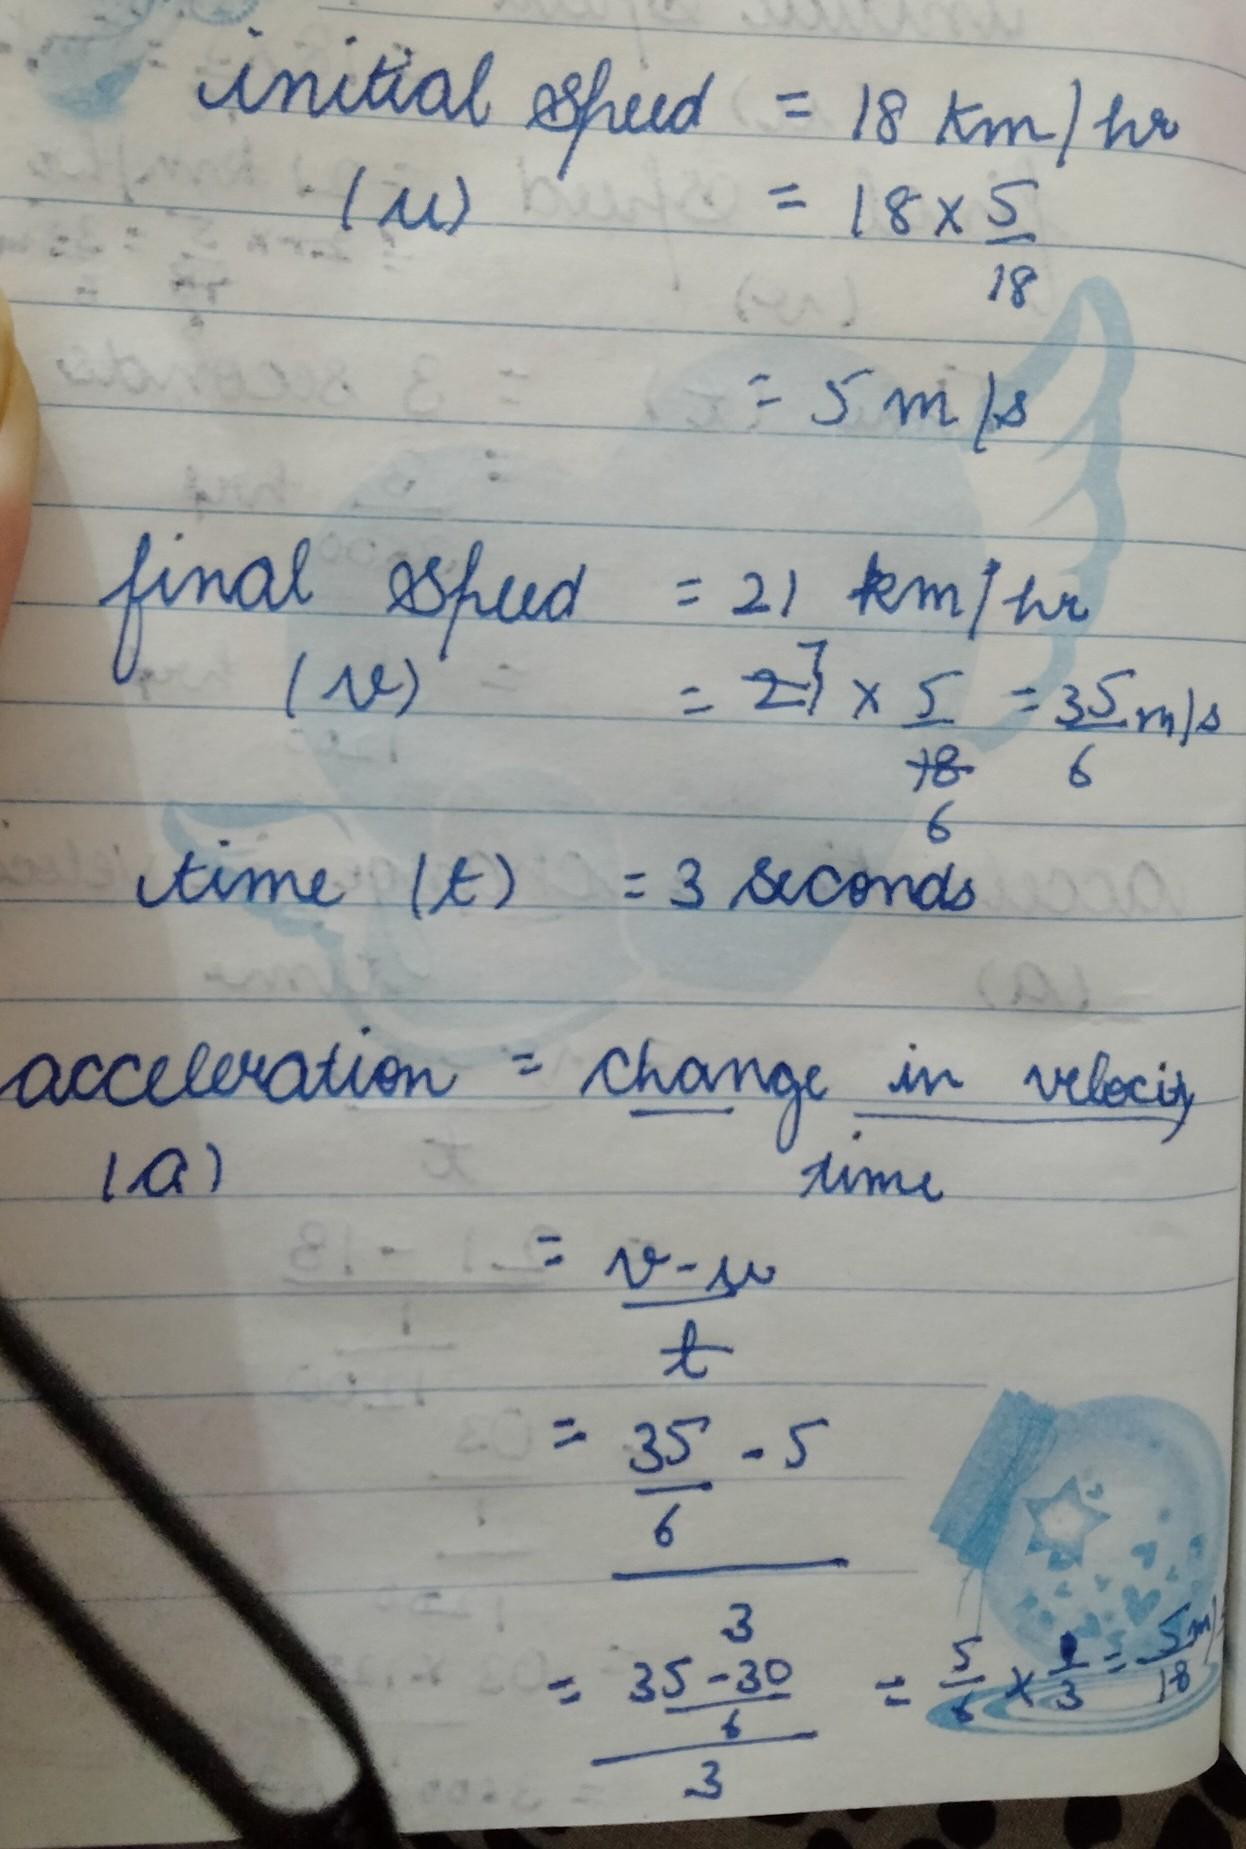 initial speed = 18 km/hr
(u) = 18 × 5/18
= 5 m/s
final speed = 21 km/hr
(v) = 21 7 × 5/18 6 = 35/6 m/s
time (t) = 3 seconds
acceleration = change in velocity / time
(a)
= v-u / t
= 35/6 - 5 / 3
= 35-30/6 / 3 = 5/6 × 1/3 = 5/18 m/